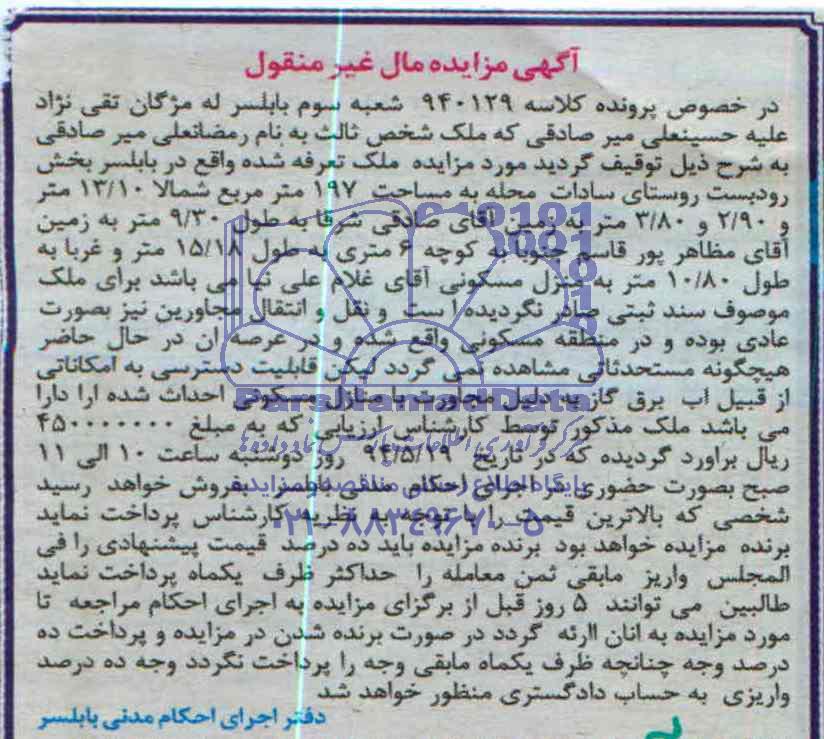 آگهی مزایده مال غیر منقول
در خصوص پرونده کلاسه ۹۴۰۱۲۹ شعبه سوم بابلسر له مژگان تقی نژاد
علیه حسینعلی میر صادقی که ملک شخص ثالث به نام رمضانعلی میر صادقی
به شرح ذیل توقیف گردید مورد مزایده ملک تعرفه شده واقع در بابلسر بخش
رودبست روستای سادات محله به مساحت ۱۹۷ متر مربع شمالا ۱۳/۱۰ متر
و ۲/۹۰ و ۳/۸۰ متر به زمین آقای صادقی شرقا به طول ۹/۳۰ متر به زمین
آقای مظاهر پور قاسم جنوبا به کوچه ۶ متری به طول ۱۵/۱۸ متر و غربا به
طول ۱۰/۸۰ متر به منزل مسکونی آقای غلام علی نیا می باشد برای ملک
موصوف سند ثبتی صادر نگردیده ا ست و نقل و انتقال مجاورین نیز بصورت
عادی بوده و در منطقه مسکونی واقع شده و در عرصه ان در حال حاضر
هیچگونه مستحدثاتی مشاهده نمی گردد لیکن قابلیت دسترسی به امکاناتی
از قبیل اب برق گاز به دلیل مجاورت با منازل مسکونی احداث شده ارا دارا
می باشد ملک مذکور توسط کارشناس ارزیابی که به مبلغ ۴۵۰۰۰۰۰۰۰
ریال براورد گردیده که در تاریخ ۹۴/۵/۱۹ روز دوشنبه ساعت ۱۰ الی ۱۱
صبح بصورت حضوری در اجرای احکام مدنی بابلسر بفروش خواهد رسید
شخصی که بالاترین قیمت را با توجه به نظریه کارشناس پرداخت نماید
برنده مزایده خواهد بود برنده مزایده باید ده درصد قیمت پیشنهادی را فی
المجلس واریز مابقی ثمن معامله را حداکثر ظرف یکماه پرداخت نماید
طالبین می توانند ۵ روز قبل از برگزای مزایده به اجرای احکام مراجعه تا
مورد مزایده به انان اارئه گردد در صورت برنده شدن در مزایده و پرداخت ده
درصد وجه چنانچه ظرف یکماه مابقی وجه را پرداخت نگردد وجه ده درصد
واریزی به حساب دادگستری منظور خواهد شد
دفتر اجرای احکام مدنی بابلسر
ParsNamadData
پایگاه اطلاع رسانی مناقصه و مزایده
۰۲۱-۸۸۳۴۹۶۷۰-۵